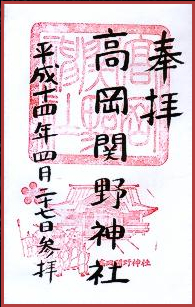 奉拝
高岡関野神社
平成十四年四月二十七日参拝
高岡関野神社